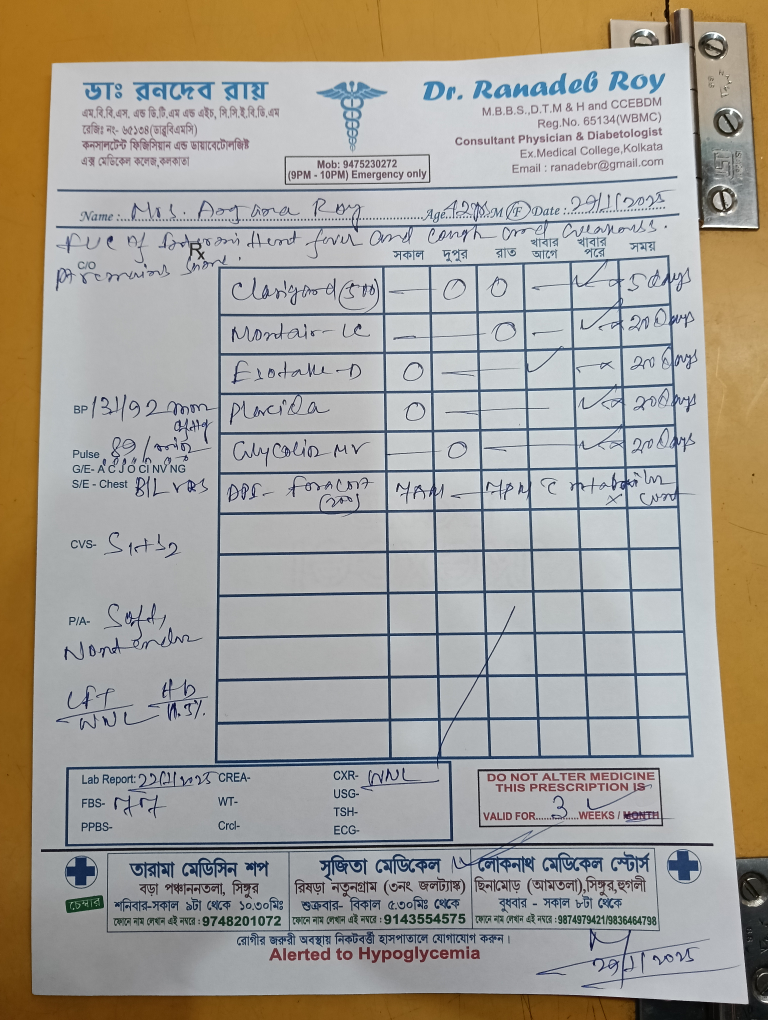 ডাঃ রনদেব রায়
এম.বি.বি.এস. এন্ড ডি.টি.এম এন্ড এইচ, সি.সি.ই.বি.ডি.এম
রেজিঃ নং- ৬৫১৩৪(ডাব্লুবিএমসি)
কনসালটেন্ট ফিজিসিয়ান এন্ড ডায়াবেটোলজিষ্ট
এক্স মেডিকেল কলেজ,কলকাতা
Mob: 9475230272
(9PM - 10PM) Emergency only
Dr. Ranadeb Roy
M.B.B.S.,D.T.M & H and CCEBDM
Reg.No. 65134(WBMC)
Consultant Physician & Diabetologist
Ex.Medical College,Kolkata
Email : ranadebr@gmail.com
Name :.. Mrs. Roy Age. 42 M/F Date : 29/1/2025
fever and cough and
C/O
Rx সকাল দুপুর রাত খাবার আগে খাবার পরে সময়
(500) — 0 0 — ✓ 5 days
Montair-LC — — 0 — ✓ 20 Days
Esotake-D 0 — ✓ — 20 Days
BP 131/92 Placida 0 — ✓ 20 Days
Pulse 89/min — 0 — ✓ 20 Days
G/E- A C J O CI NV NG
S/E - Chest B/L VBS Foracort (200) 7AM — 7PM
CVS- S1+S2
P/A- Soft,
Nontender
LFT Hb
WNL 11.3%
Lab Report: 22/1/2025 CREA- CXR- WNL
FBS- 77 WT- USG-
PPBS- Crcl- TSH-
ECG-
DO NOT ALTER MEDICINE
THIS PRESCRIPTION IS
VALID FOR 3 WEEKS / MONTH
চেম্বার
তারামা মেডিসিন শপ
বড়া পঞ্চাননতলা, সিঙ্গুর
শনিবার-সকাল ৯টা থেকে ১০.৩০মিঃ
ফোনে নাম লেখান এই নম্বরে : 9748201072
সৃজিতা মেডিকেল
রিষড়া নতুনগ্রাম (৩নং জলট্যাঙ্ক)
শুক্রবার- বিকাল ৫.৩০মিঃ থেকে
ফোনে নাম লেখান এই নম্বরে : 9143554575
লোকনাথ মেডিকেল স্টোর্স
ছিনামোড় (আমতলা),সিঙ্গুর,হুগলী
বুধবার - সকাল ৮টা থেকে
ফোনে নাম লেখান এই নম্বরে : 9874979421/9836464798
রোগীর জরুরী অবস্থায় নিকটবর্তী হাসপাতালে যোগাযোগ করুন।
Alerted to Hypoglycemia
29/1/2025